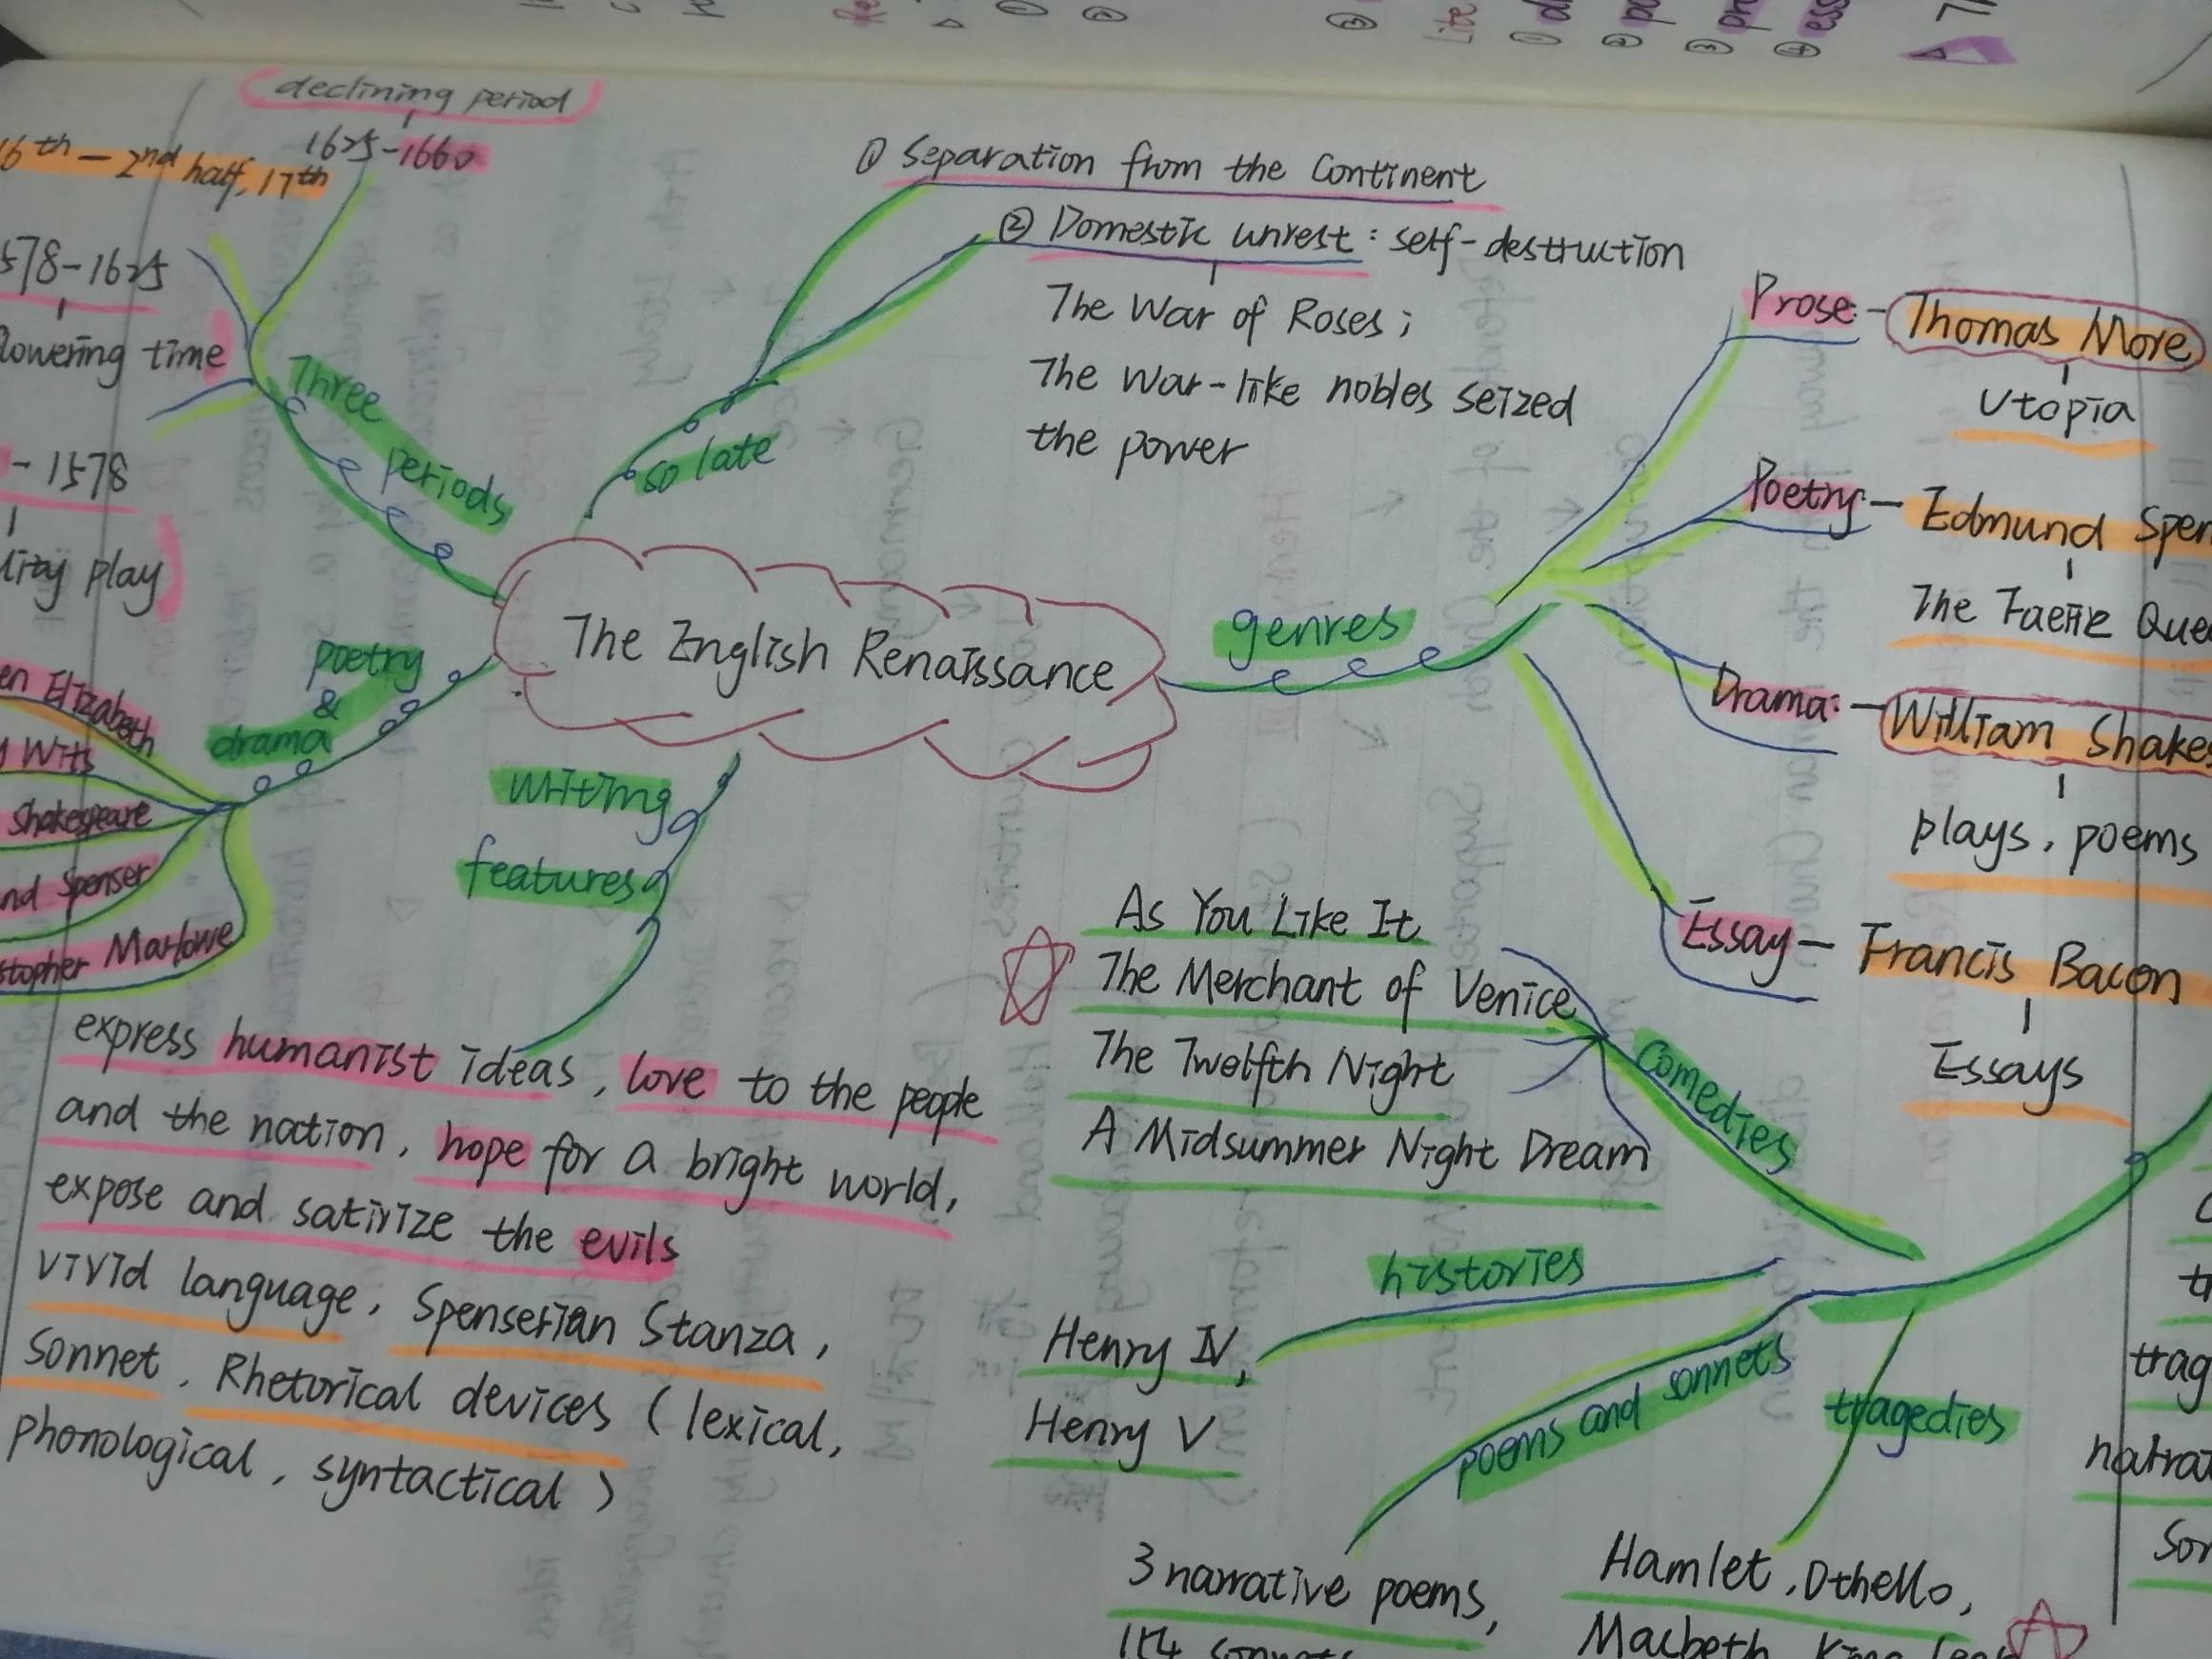 declining period
1625-1660
6th - 2nd half, 17th
578-1625
lowering time
- 1578
lity play
Three
periods
so late
① Separation from the Continent
② Domestic unrest: self-destruction
The War of Roses;
The war-like nobles seized
the power
The English Renaissance
genres
Prose: - Thomas More
Utopia
Poetry - Edmund Spen
The Faerie Que
Drama: - William Shakes
plays, poems
Essay - Francis Bacon
Essays
poetry
&
drama
en Elizabeth
Wits
Shakespeare
nd Spenser
stopher Marlowe
writing
features
express humanist ideas, love to the people
and the nation, hope for a bright world,
expose and satirize the evils
vivid language, Spenserian Stanza,
Sonnet, Rhetorical devices (lexical,
phonological, syntactical)
As You Like It
The Merchant of Venice
The Twelfth Night
A Midsummer Night Dream
comedies
histories
Henry IV,
Henry V
poems and sonnets
tragedies
3 narrative poems,
154 sonnets
Hamlet, Othello,
Macbeth, King Lear
trag
narrat
Son